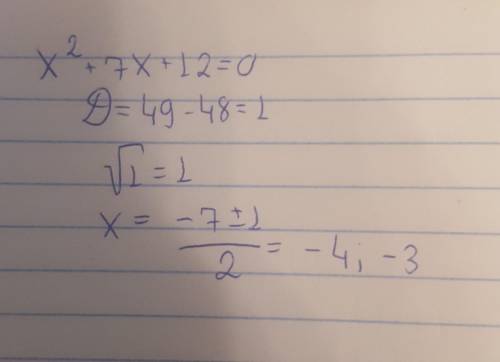 x² + 7x + 12 = 0
D = 49 - 48 = 1
√1 = 1
x = (-7 ± 1)/2 = -4; -3